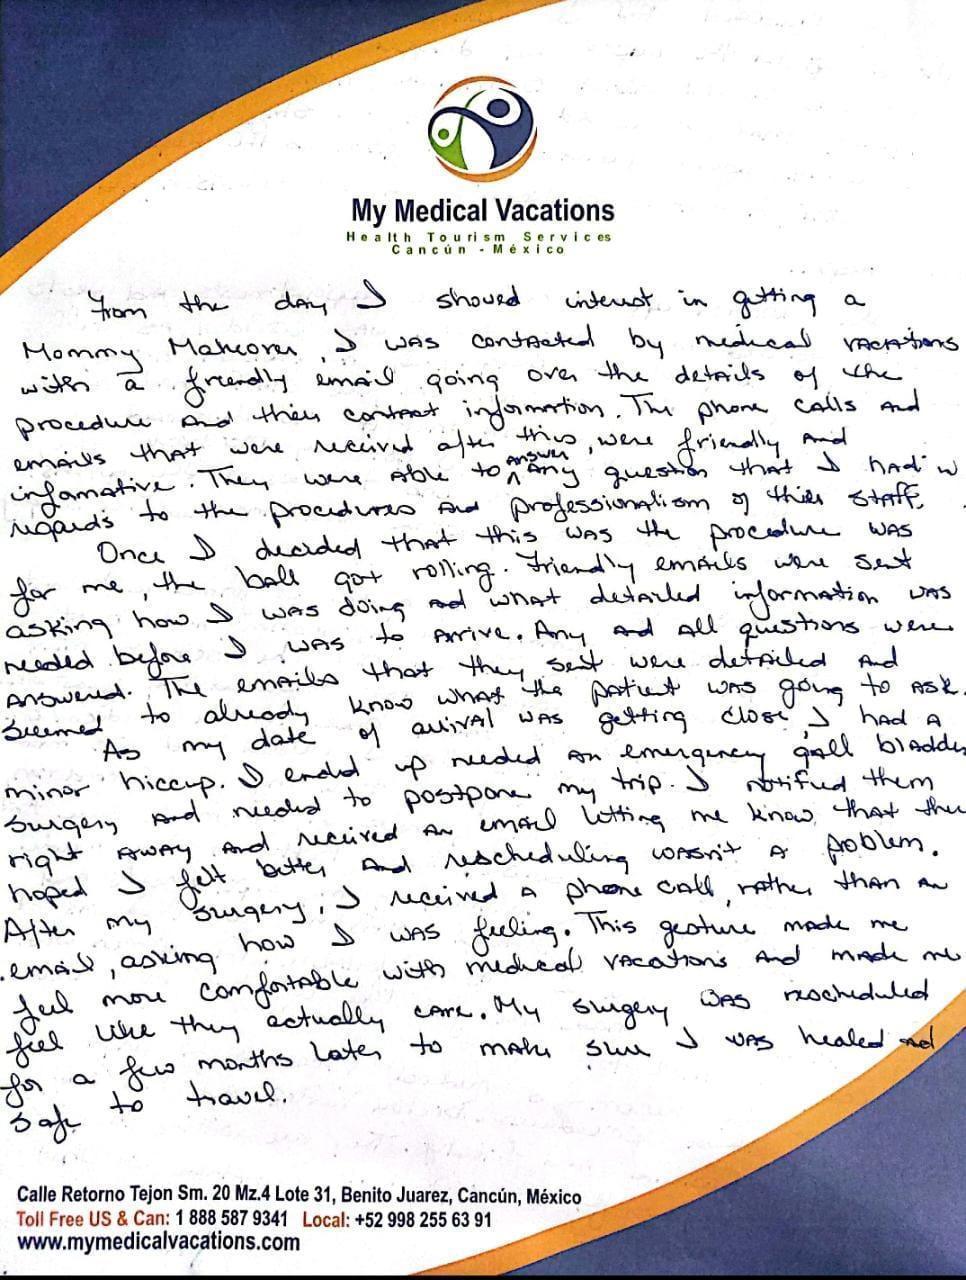 My Medical Vacations
Health Tourism Services
Cancún - México
From the day I showed interest in getting a
Mommy Makeover, I was contacted by medical vacations
with a friendly email going over the details of the
procedure and their contact information. The phone calls and
emails that were received after this, were friendly and
infomative. They were able to answer any question that I had in
regards to the procedures and professionalism of thier staff.
Once I decided that this was the procedure was
for me, the ball got rolling. Friendly emails were sent
asking how I was doing and what detailed information was
needed before I was to arrive. Any and all questions were
answered. The emails that they sent were detailed and
seemed to already know what the patient was going to ask.
As my date of arrival was getting close, I had a
minor hiccup. I ended up needed an emergency gall bladder
surgery and needed to postpone my trip. I notified them
right away and received an email letting me know that they
hoped I felt better and rescheduling wasn't a problem.
After my surgery, I received a phone call, rather than an
email, asking how I was feeling. This gesture made me
feel more comfortable with medical vacations and made me
feel like they actually care. My surgery was rescheduled
for a few months later to make sure I was healed and
safe to travel.
Calle Retorno Tejon Sm. 20 Mz.4 Lote 31, Benito Juarez, Cancún, México
Toll Free US & Can: 1 888 587 9341 Local: +52 998 255 63 91
www.mymedicalvacations.com